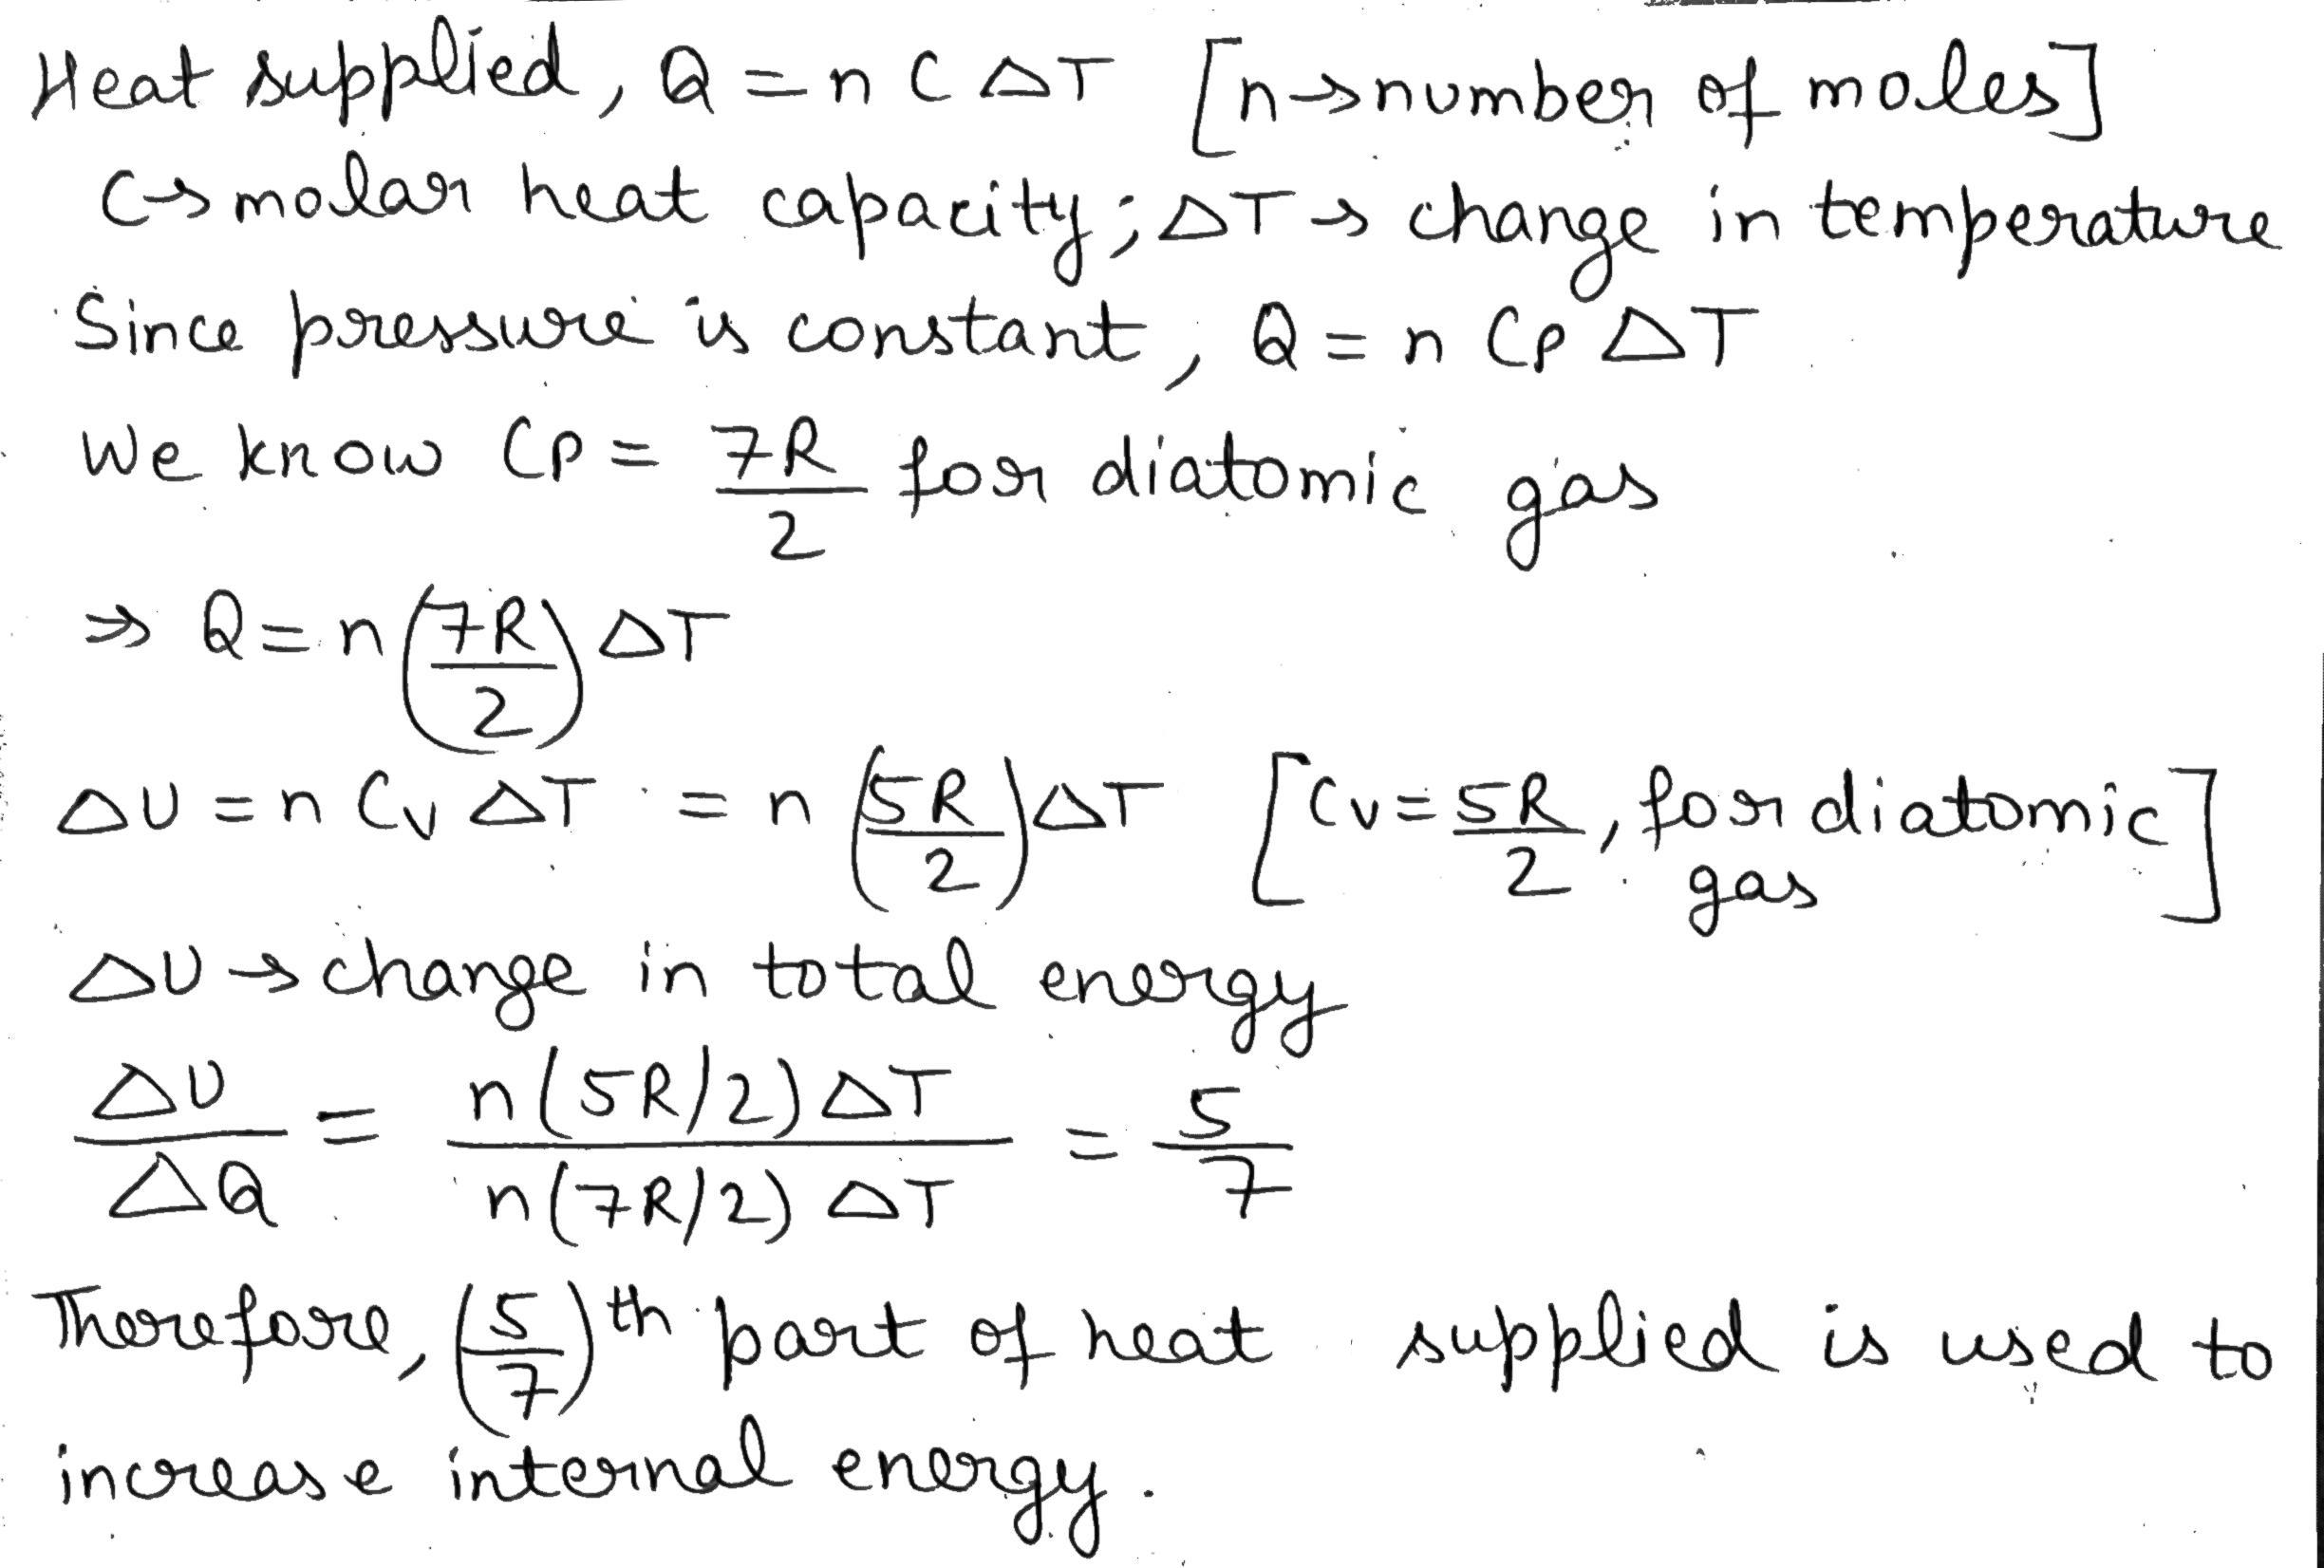 Heat supplied, Q = n C ΔT [n→number of moles]
C→ molar heat capacity; ΔT → change in temperature
Since pressure is constant, Q = n CP ΔT
We know CP = 7R/2 for diatomic gas
⇒ Q = n(7R/2) ΔT
ΔU = n Cv ΔT = n(5R/2)ΔT [Cv = 5R/2, for diatomic gas]
ΔU → change in total energy
ΔU/ΔQ = n(5R/2)ΔT / n(7R/2)ΔT = 5/7
Therefore, (5/7)th part of heat supplied is used to
increase internal energy.